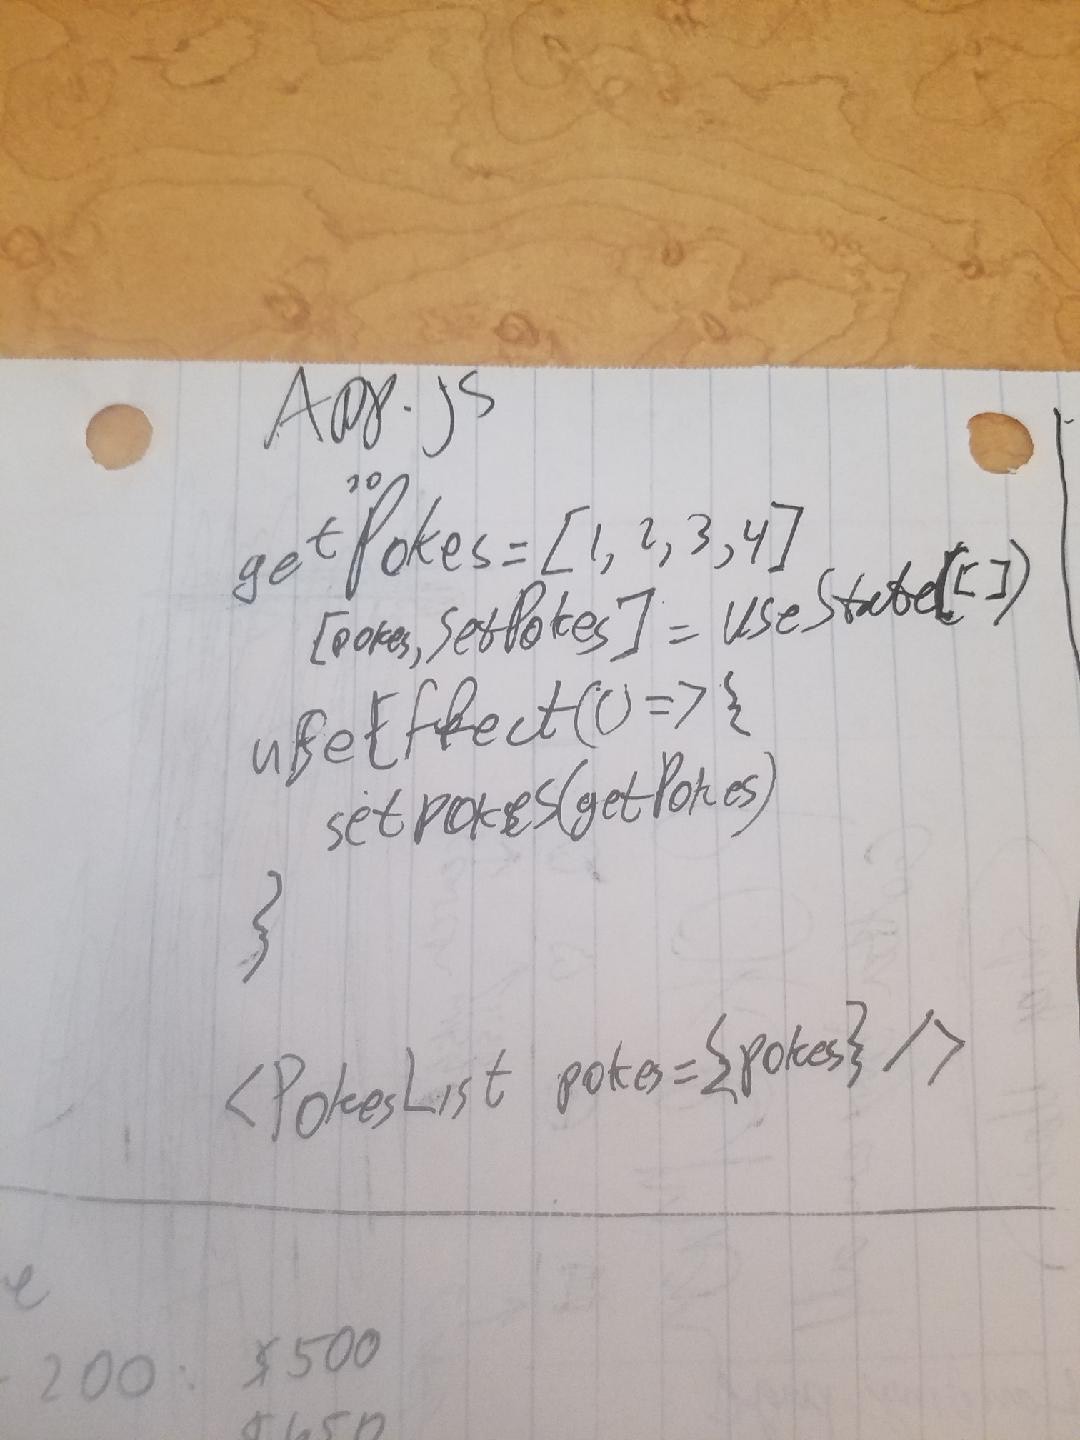 App.js
20
getPokes = [1, 2, 3, 4]
[pokes, setPokes] = useState([])
useEffect(() => {
setpokes(getPokes)
}
<PokesList pokes={pokes} />
200: $500
$650